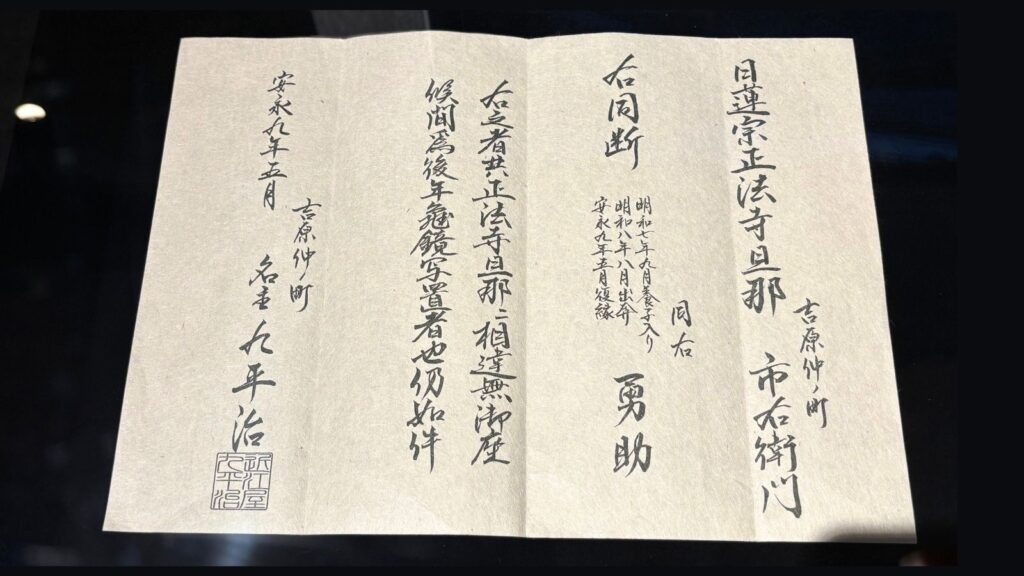 吉原仲ノ町
日蓮宗正法寺旦那 市右衛門
同右
右同断 勇助
明和七年九月養子入り
明和八年八月出奔
安永九年五月復縁
右之者共正法寺旦那ニ相違無御座
候間為後年亀鏡写置者也仍如件
安永九年五月
吉原仲ノ町
名主 九平治
近江屋
九平治